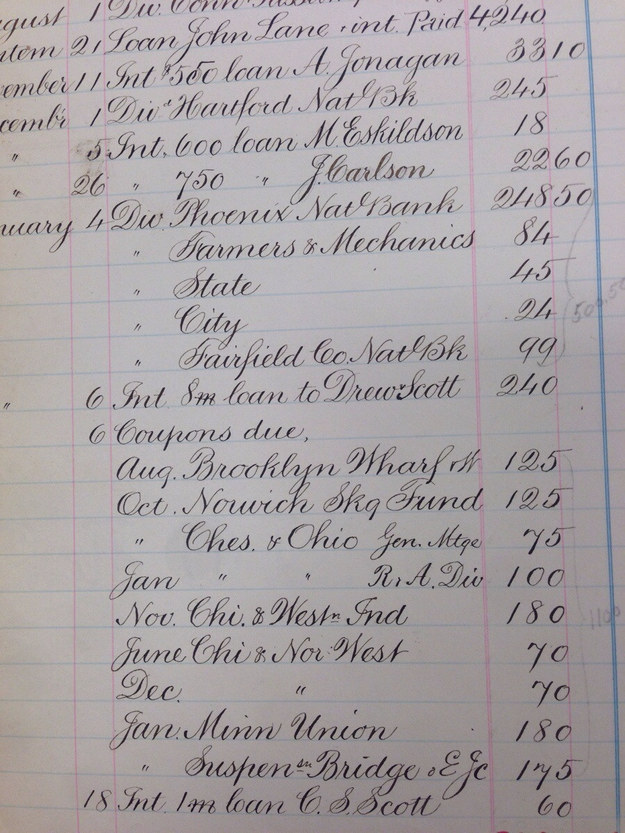 1 Div. Conn
21 Loan John Lane & int. Paid 4,240
11 Int $550 loan A. Jonagan 33 10
1 Div Hartford Nat'l Bk 245
" 5 Int. 600 loan M. Eskildson 18
" 26 " 750 " J. Carlson 22 60
4 Div Phoenix Nat'l Bank 248 50
" Farmers & Mechanics 84
" State 45
" City 24
" Fairfield Co. Nat'l Bk 99
" 6 Int 8m loan to Drew & Scott 240
6 Coupons due,
Aug. Brooklyn Wharf 125
Oct. Norwich Skg Fund 125
" Ches. & Ohio Gen. Mtge 75
Jan " " R. & A. Div 100
Nov. Chi. & Westn Ind 180
June Chi & Nor West 70
Dec. " 70
Jan. Minn Union 180
" Suspensn Bridge & E Jc 175
18 Int 1m loan C. S. Scott 60